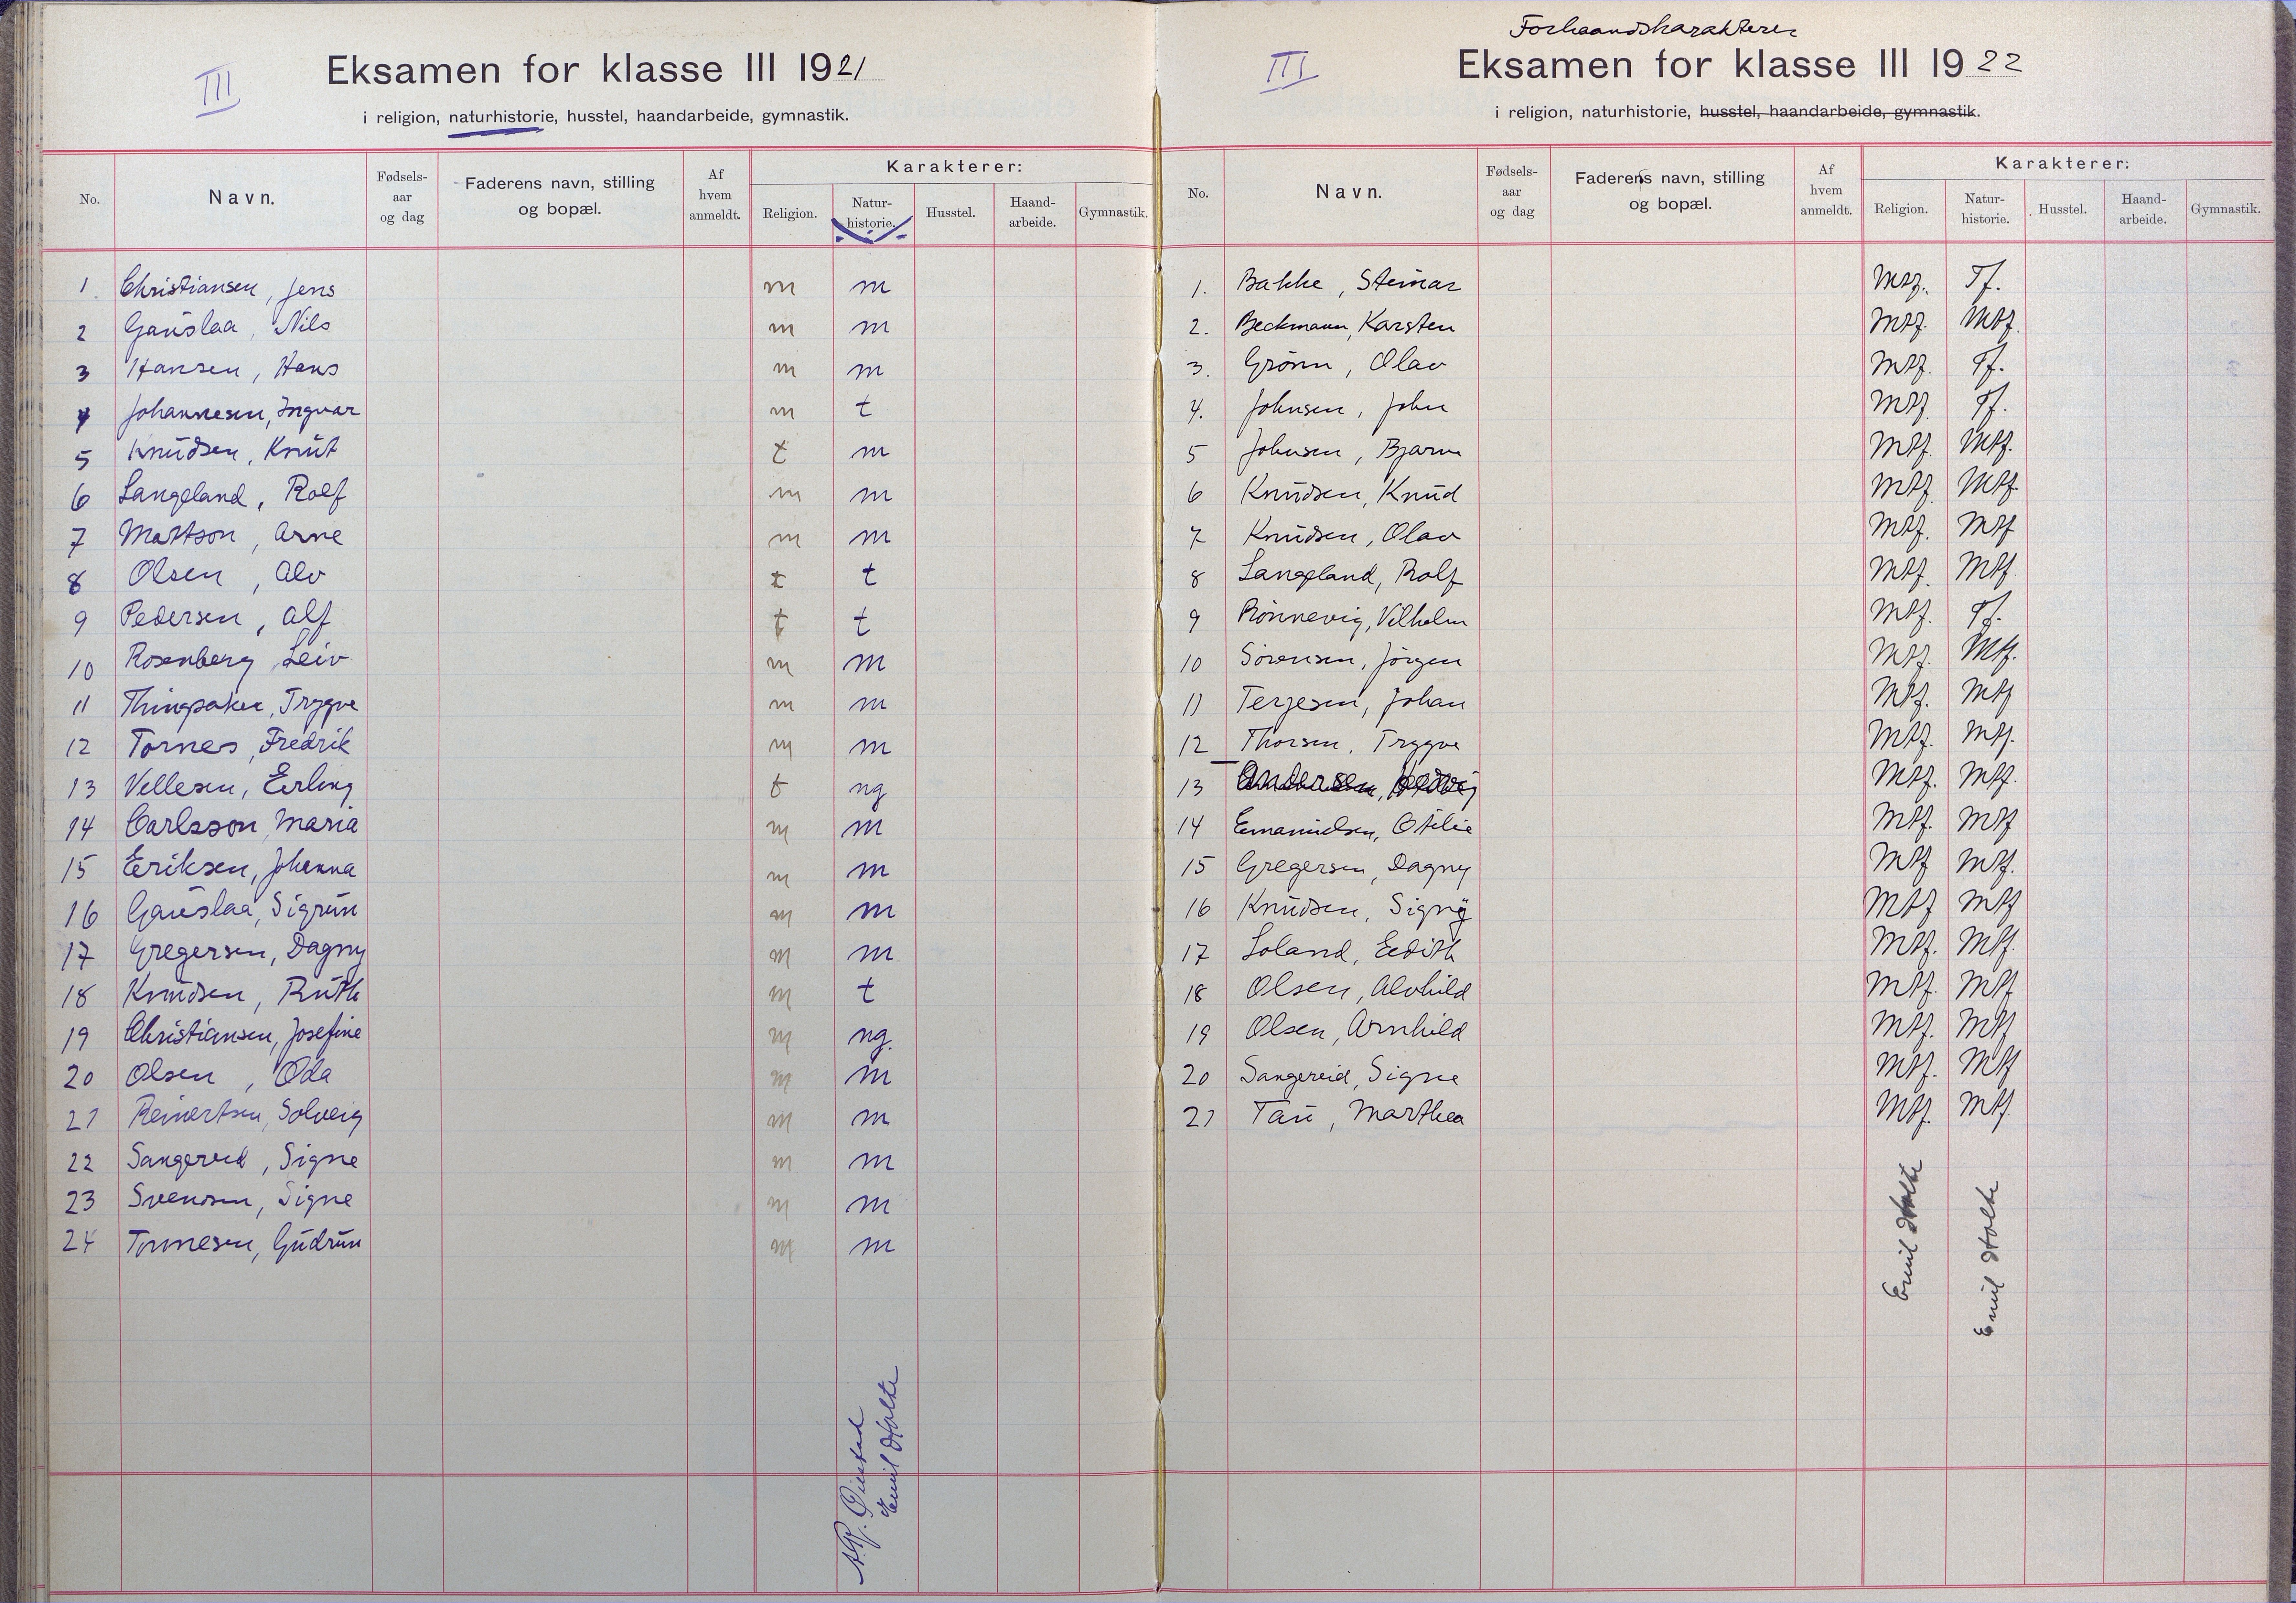 III
Eksamen for klasse III 1921
i religion, naturhistorie, husstel, haandarbeide, gymnastik.
No. Navn. Fødsels-aar og dag Faderens navn, stilling og bopæl. Af hvem anmeldt. Karakterer:
Religion. Natur-historie. Husstel. Haand-arbeide. Gymnastik.
1. Christiansen, Jens m m
2 Gauslaa, Nils m m
3 Hansen, Hans m m
4 Johannesen, Ingvar m t
5 Knudsen, Knut t m
6 Langeland, Rolf m m
7 Mattson, Arne m m
8 Olsen, Alv t t
9 Pedersen, Alf t t
10 Rosenberg, Leiv m m
11 Thingsaker, Trygve m m
12 Tornes, Fredrik m m
13 Vellesen, Erling t ng
14 Carlsson, Maria m m
15 Eriksen, Johanna m m
16 Gauslaa, Sigrun m m
17 Gregersen, Dagny m m
18 Knudsen, Ruth m t
19 Christiansen, Josefine m ng.
20 Olsen, Oda m m
21 Reinertsen, Solveig m m
22 Sangereid, Signe m m
23 Svendsen, Signe m m
24 Tønnesen, Gudrun m m
Emil Holte
Forhaandskarakterer
III
Eksamen for klasse III 1922
i religion, naturhistorie, husstel, haandarbeide, gymnastik.
No. Navn. Fødsels-aar og dag Faderens navn, stilling og bopæl. Af hvem anmeldt. Karakterer:
Religion. Natur-historie. Husstel. Haand-arbeide. Gymnastik.
1. Bakke, Steinar Mtf. Tf.
2. Beckmann, Karsten Mtf. Mtf.
3. Grönn, Olav Mtf. Tf.
4. Johnsen, John Mtf. Tf.
5 Johnsen, Bjarne Mtf. Mtf.
6 Knudsen, Knud Mtf. Mtf.
7 Knudsen, Olav Mtf. Mtf
8 Langeland, Rolf Mtf. Mtf
9 Rönnevig, Vilhelm Mtf. Tf.
10 Sörensen, Jörgen Mtf. Mtf.
11 Terjesen, Johan Mtf. Mtf
12 Thorsen, Trygve Mtf. Mtf.
13 Andersen, Mtf. Mtf.
14 Emanuelsen, Otilie Mtf. Mtf
15 Gregersen, Dagny Mtf Mtf.
16 Knudsen, Signy Mtf Mtf
17 Loland, Edith Mtf. Mtf.
18 Olsen, Alvhild Mtf. Mtf
19 Olsen, Arnhild Mtf. Mtf
20 Sangereid, Signe Mtf. Mtf
21 Tau, Marthea Mtf. Mtf.
Emil Holte
Emil Holte